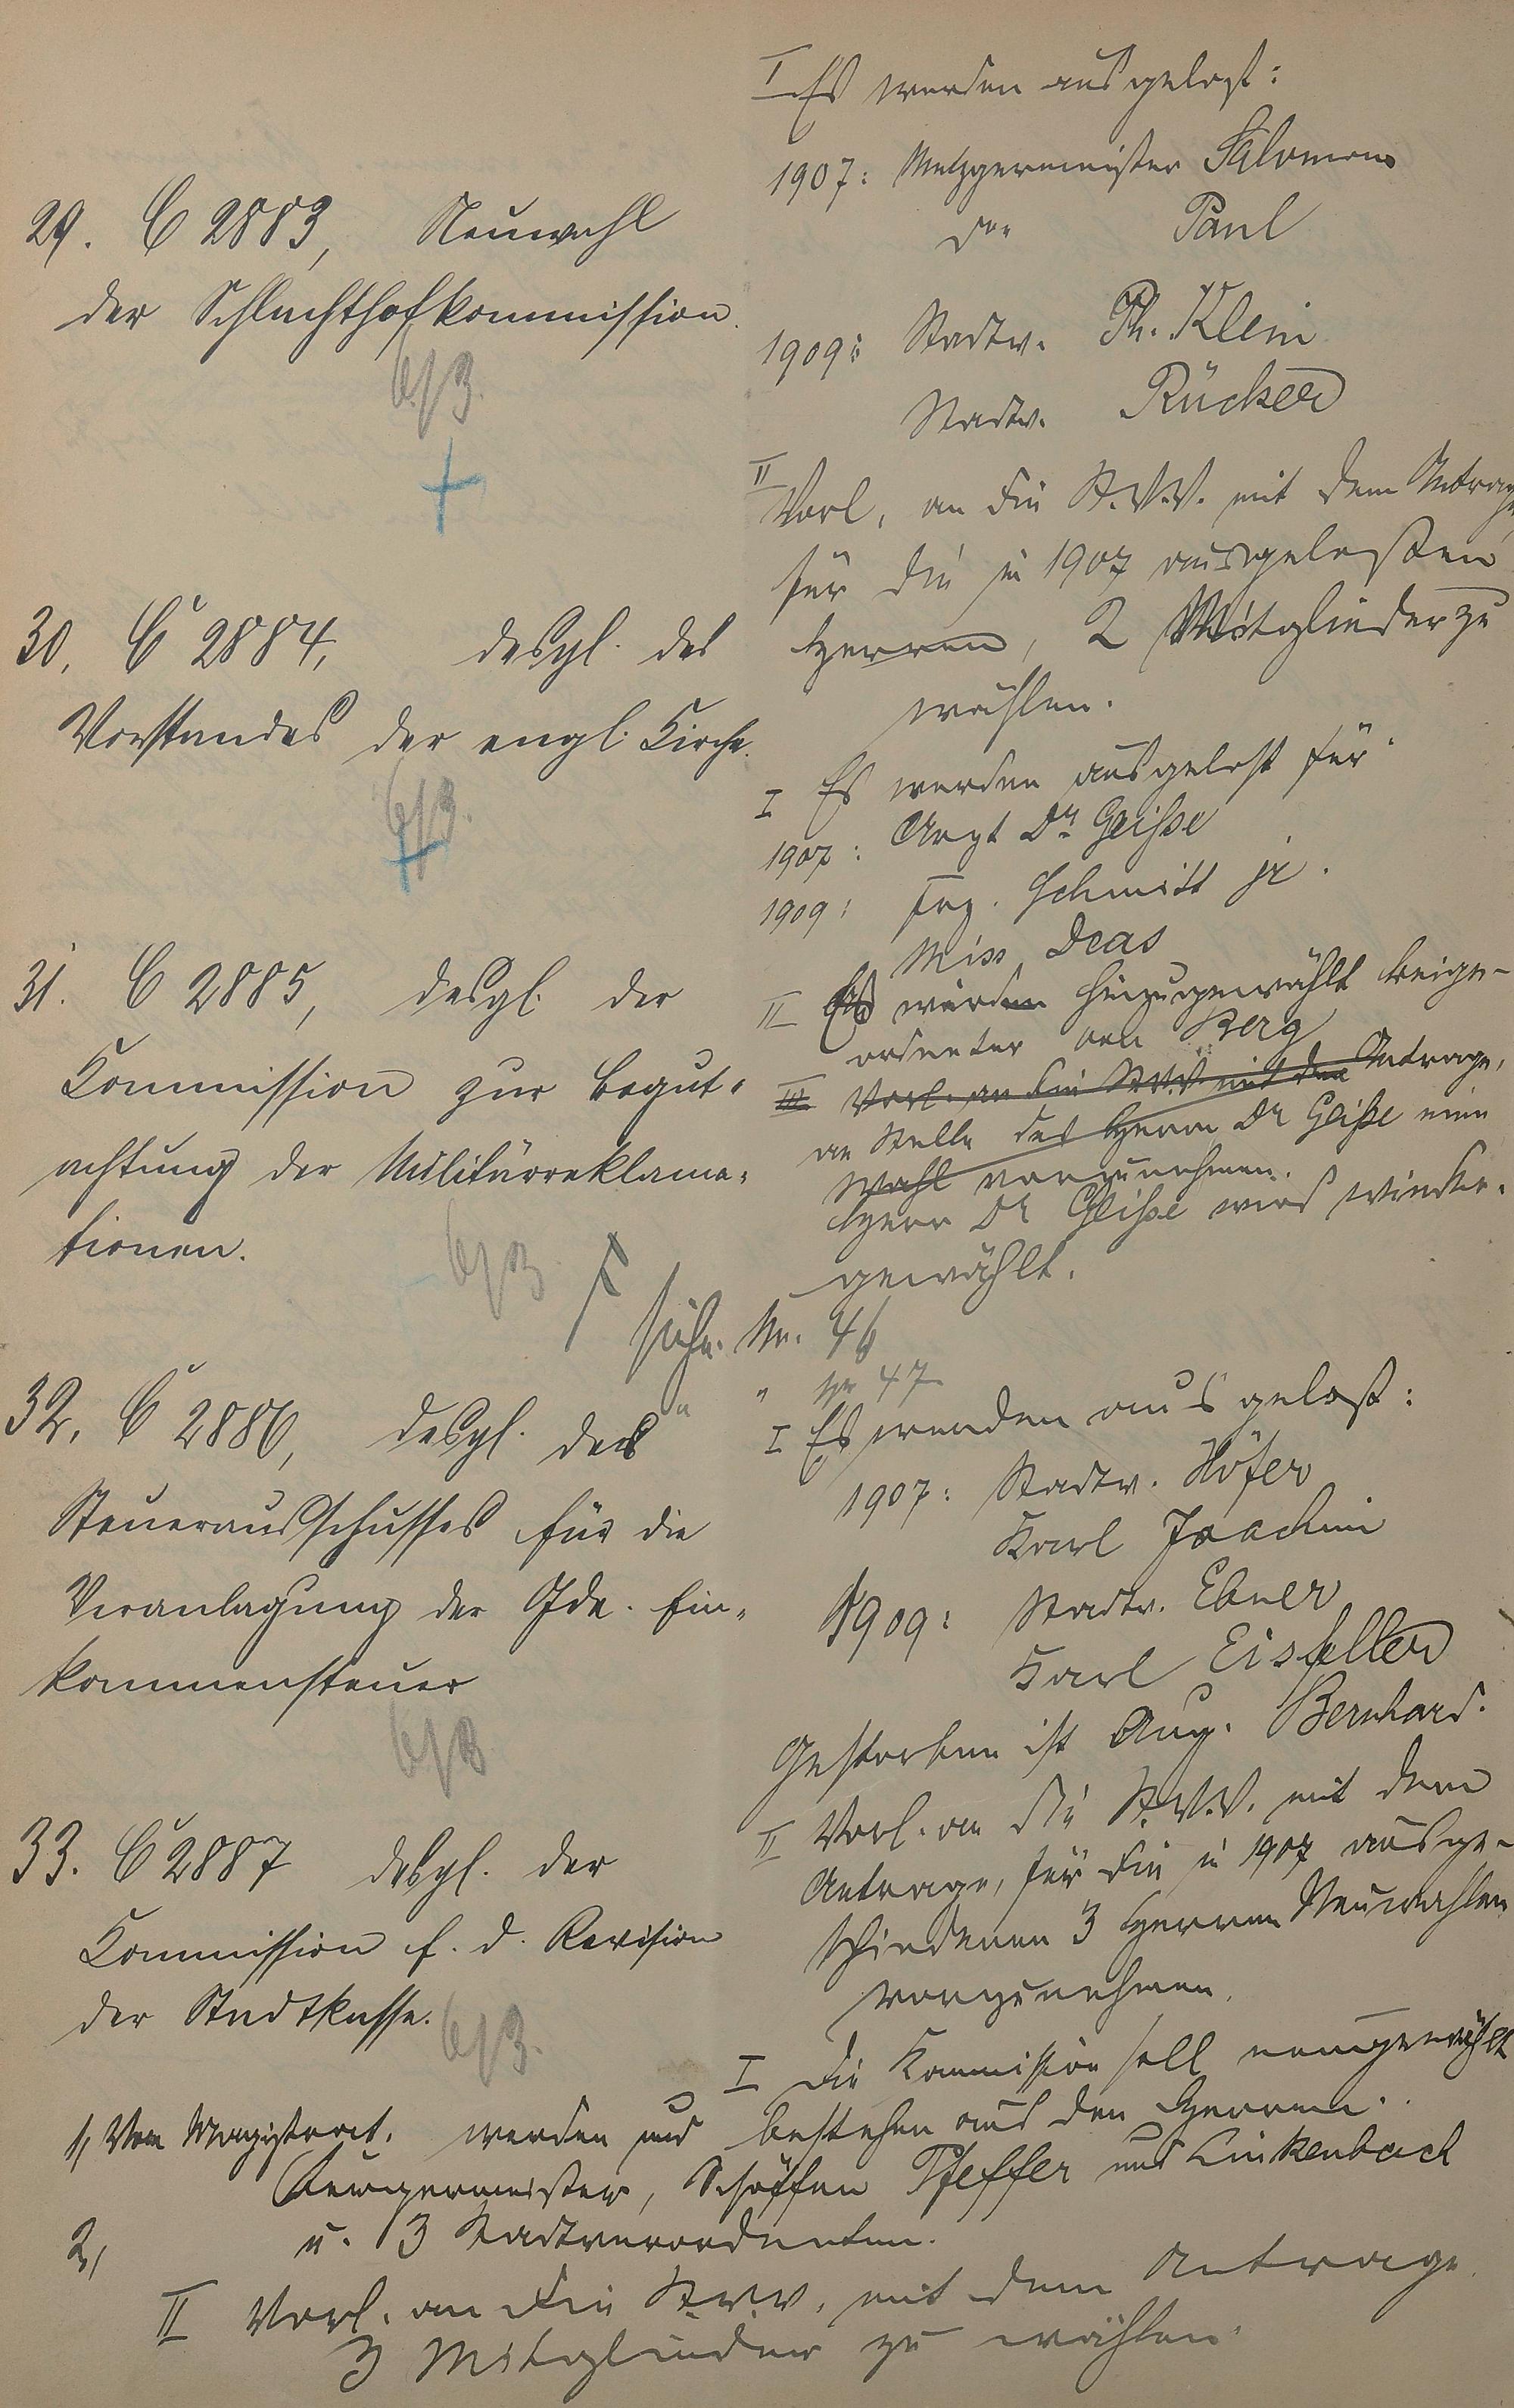 29. C 2883, Neuwahl
der Schlachthofkommission.
6/3.
I Es werden ausgelost:
1907: Metzgermeister Salomon
do Paul
1909: Stadtv. Ph. Klein
Stadtv. Rücker
II Vorl. an die St.V.V. mit dem Antrage
für die in 1907 ausgelosten
Herren, 2 Mitglieder zu
wählen.
30. C 2884, desgl. des
Vorstandes der engl. Kirche.
6/3.
I Es werden ausgelost für
1907: Arzt Dr. Geisse
1909: Frz. Schmitt jr.
Miss Deas
II Es wurden hinzugewählt Beige-
ordneter von Berg
III Vorl. an die St.V.V. mit dem Antrage,
an Stelle des Herrn Dr Geisse eine
Wahl vorzunehmen.
Herr Dr Geisse wird wieder-
gewählt.
31. C 2885, desgl. der
Commission zur Begut-
achtung der Militärreklama-
tionen.
6/3
siehe Nr. 46
" " 47
32. C 2886, desgl. des
Steuerausschusses für die
Veranlagung der Gde. Ein-
kommensteuer
6/3
I Es werden ausgelost:
1907: Stadtv. Höfer
Karl Joachim
1909: Stadtv. Ebner
Karl Eisfeller
Gestorben ist Aug. Bernhard.
II Vorl. an die St.V.V. mit dem
Antrage, für die in 1907 ausge-
schiedenen 3 Herren Neuwahlen
vorzunehmen.
33. C 2887 desgl. der
Commission f. d. Revision
der Stadtkasse.
6/3.
I Die Kommission soll neugewählt
1, Vom Magistrat. werden und bestehen aus den Herren
Bürgermeister, Schöffen Pfeffer und Linkenbach
2, u. 3 Stadtverordneten.
II Vorl. an die St.V.V. mit dem Antrage
3 Mitglieder zu wählen.